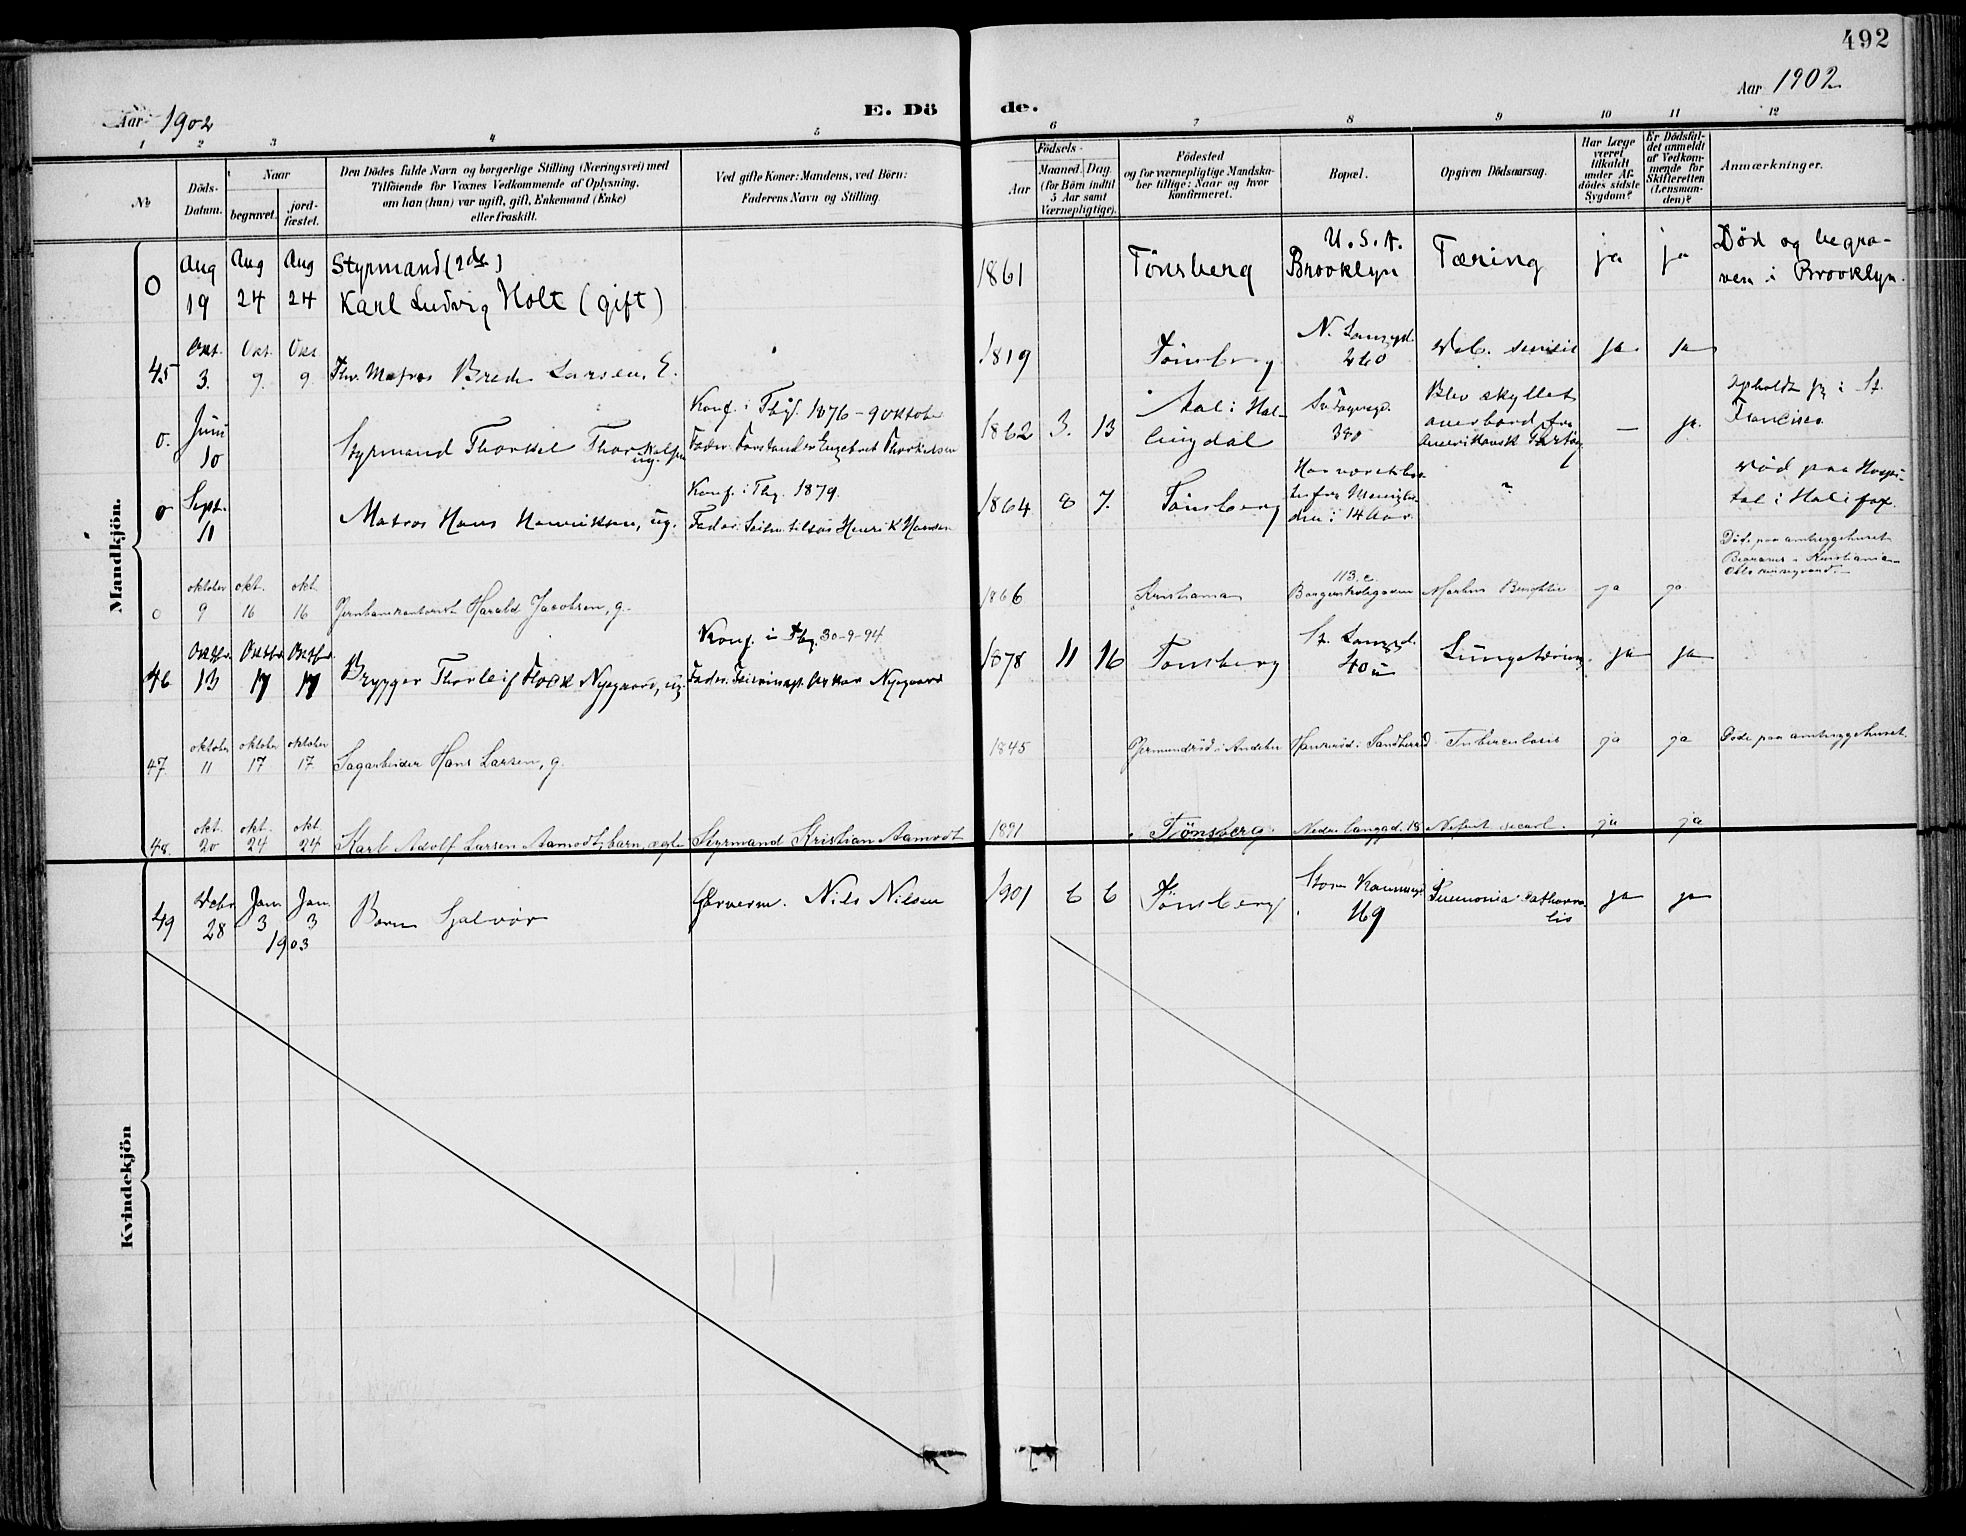 492
Aar 1902
E. Döde.
Aar 1902
1 2 3 4 5 6 7 8 9 10 11 12
No
Döds-Datum.
Naar
begravet.
jord-fæstet.
Den Dödes fulde Navn og borgerlige Stilling (Næringsvei) med
Tilföiende for Voxnes Vedkommende af Oplysning,
om han (hun) var ugift, gift, Enkemand (Enke)
eller fraskilt.
Ved gifte Koner: Mandens, ved Börn:
Faderens Navn og Stilling.
Födsels-
Aar
Maaned. Dag
(for Börn indtil
5 Aar samt
Værnepligtige).
Födested
og for værnepligtige Mandska-
ber tillige: Naar og hvor
Konfirmeret.
Bopæl.
Opgiven Dödsaarsag.
Har Læge
været
tilkaldt
under Af-
dödes sidste
Sygdom?
Er Dödsfal-
det anmeldt
af Vedkom-
mende for
Skifteretten
(Lensman-
den)?
Anmærkninger.
Mandkjön.
0 Aug 19 Aug 24 Aug 24 Styrmand (2den)
Karl Ludvig Holt (gift)
1861 Tönsberg U.S.A. Brooklyn Tæring ja ja Död og begra-
ven i Brooklyn.
45 Okt. 3. Okt. 9. Okt. 9. Fhv. Matros Brede Larsen, E.
1819 Tönsberg N. Langgd. 260 senilis ja ja
0. Juni 10 Styrmand Thorkel Thorkelsen ug.
Konf. i Tbg. 1876 - 9 oktober
Fader: Forstander Engebret Thorkelsen
1862 3. 13 Aal i Hal-
lingdal 390 Blev skyllet
overbord fra
Amerikansk Fartøi — ja. opholdt sig i St.
Francisco
0 Sept. 11 Matros Hans Henriksen, ug.
Konf. i Tbg. 1879.
Fader: Henrik Hansen
1864 8 7. Tönsberg
i 14 Aar. Död paa Hospi-
tal i Halifax.
0 oktober 9 okt. 16 okt. 16 Harald Jacobsen, g.
1866 Kristiania 113.c. Morbus ja ja Döde paa amtssygehuset
Kristiania
46 Oktbr. 13 Oktbr. 17 Oktbr. 17 Brygger Thorleif Foss Nygaard, ug.
Konf. i Tbg. 30-9-94
Fader: Oskar Nygaard
1878 11 16 Tönsberg St. Langgd. 40 Lungetæring ja ja
47 oktober 11 oktober 17 oktober 17 Sagarbeider Hans Larsen, g.
1845 Gjermundröd i Andebu Sandherred Tuberculosis ja ja Döde paa amtssygehuset
48. okt. 20 okt. 24 okt. 24 Karl Adolf Larsen Aamodt, barn, ægte Styrmand Kristian Aamodt
1891 Tönsberg Nedre Langgad. 18 Nefrit. scarl. ja ja
Kvindekjön
49 Decbr 28 Jan. 3 Jan. 3 1903 Barn Hjalvor
Farverm. Nils Nilsen
1901 6 6 Tönsberg Store 69 Pneumonia catharra-
lis ja ja